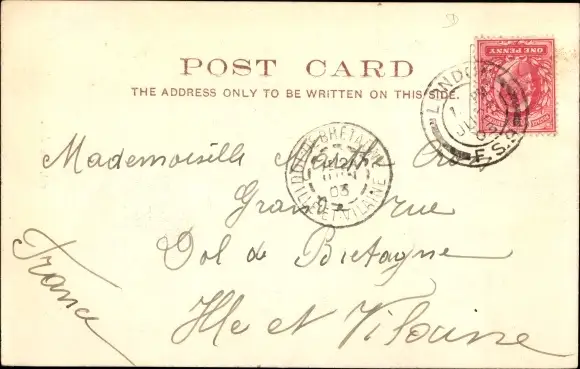 POST CARD
THE ADDRESS ONLY TO BE WRITTEN ON THIS SIDE.
ONE PENNY
LONDON
F.S.
DOL-DE-BRETAGNE
03
ILLE-ET-VILAINE
Mademoiselle
Grand rue
Dol de Bretagne
Ille et Vilaine
France